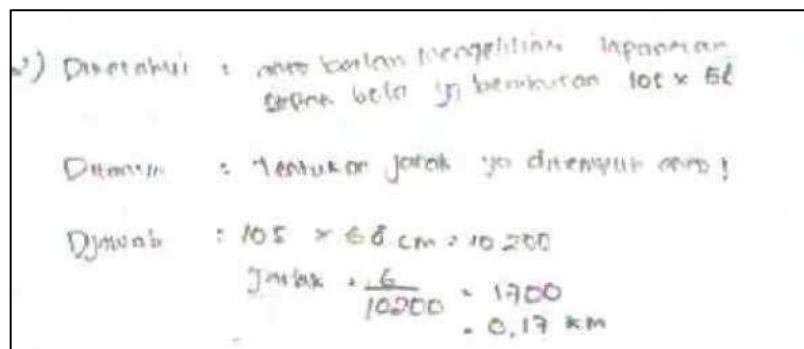 ) Diketahui : berlari mengelilingi lapangan
sepak bola yg berukuran 105 x 68
Ditanya : Tentukan jarak yg ditempuh
Dijawab : 105 x 68 cm = 10200
Jarak = 6/10200 = 1700
= 0,17 km